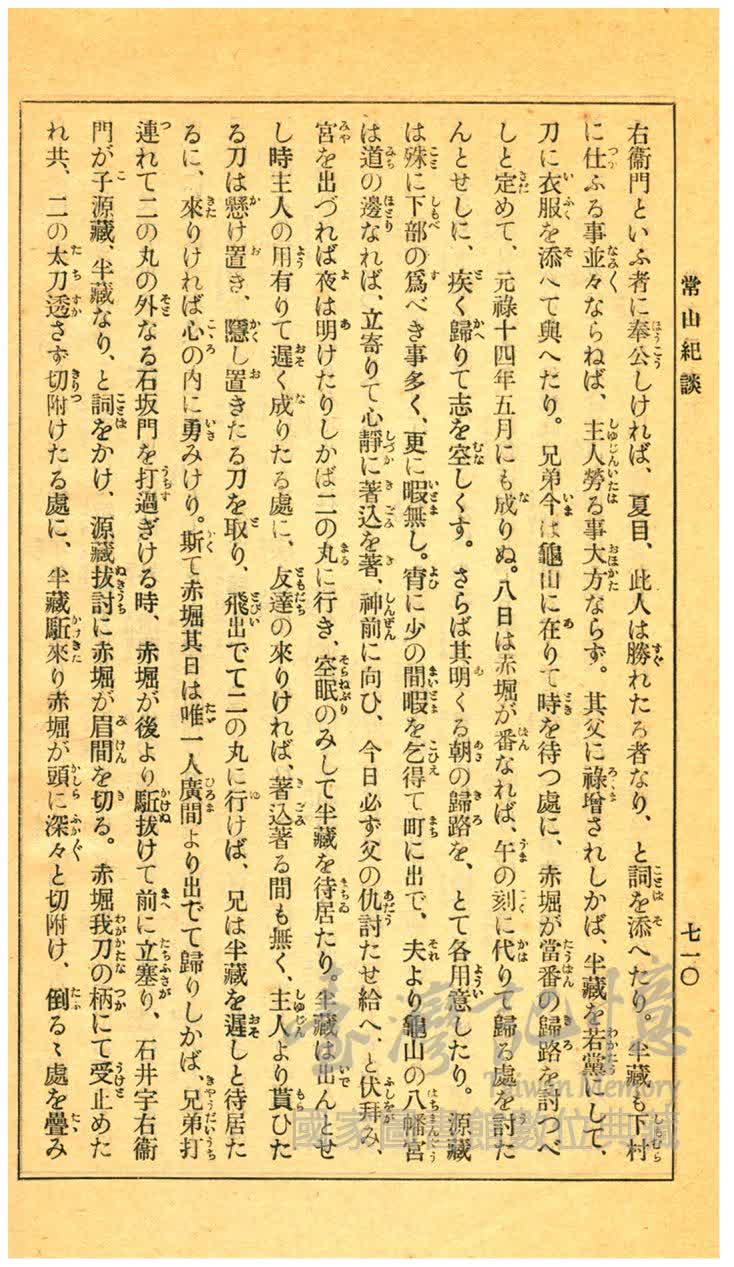 常山紀談
七一〇
右衞門といふ者に奉公しければ、夏目、此人は勝れたる者なり、と詞を添へたり。半藏も下村
に仕ふる事並々ならねば、主人勞る事大方ならず。其父に祿增されしかば、半藏を若黨にして、
刀に衣服を添へて與へたり。兄弟今は龜山に在りて時を待つ處に、赤堀が當番の歸路を討つべ
しと定めて、元祿十四年五月にも成りぬ。八日は赤堀が番なれば、午の刻に代りて歸る處を討た
んとせしに、疾く歸りて志を空しくす。さらば其明くる朝の歸路を、とて各用意したり。源藏
は殊に下部の爲べき事多く、更に暇無し。宵に少の間暇を乞得て町に出で、夫より龜山の八幡宮
は道の邊なれば、立寄りて心靜に著込を著、神前に向ひ、今日必ず父の仇討たせ給へ、と伏拜み、
宮を出づれば夜は明けたりしかば二の丸に行き、空眠のみして半藏を待居たり。半藏は出んとせ
し時主人の用有りて遲く成りたる處に、友達の來りければ、著込著る間も無く、主人より貰ひた
る刀は懸け置き、隱し置きたる刀を取り、飛出でて二の丸に行けば、兄は半藏を遲しと待居た
るに、來りければ心の內に勇みけり。斯て赤堀其日は唯一人廣間より出でて歸りしかば、兄弟打
連れて二の丸の外なる石坂門を打過ぎける時、赤堀が後より駈拔けて前に立塞り、石井宇右衞
門が子源藏、半藏なり、と詞をかけ、源藏拔討に赤堀が眉間を切る。赤堀我刀の柄にて受止めた
れ共、二の太刀透さず切附けたる處に、半藏駈來り赤堀が頭に深々と切附け、倒るゝ處を疊み
臺灣記憶
Taiwan Memory
國家圖書館數位典藏